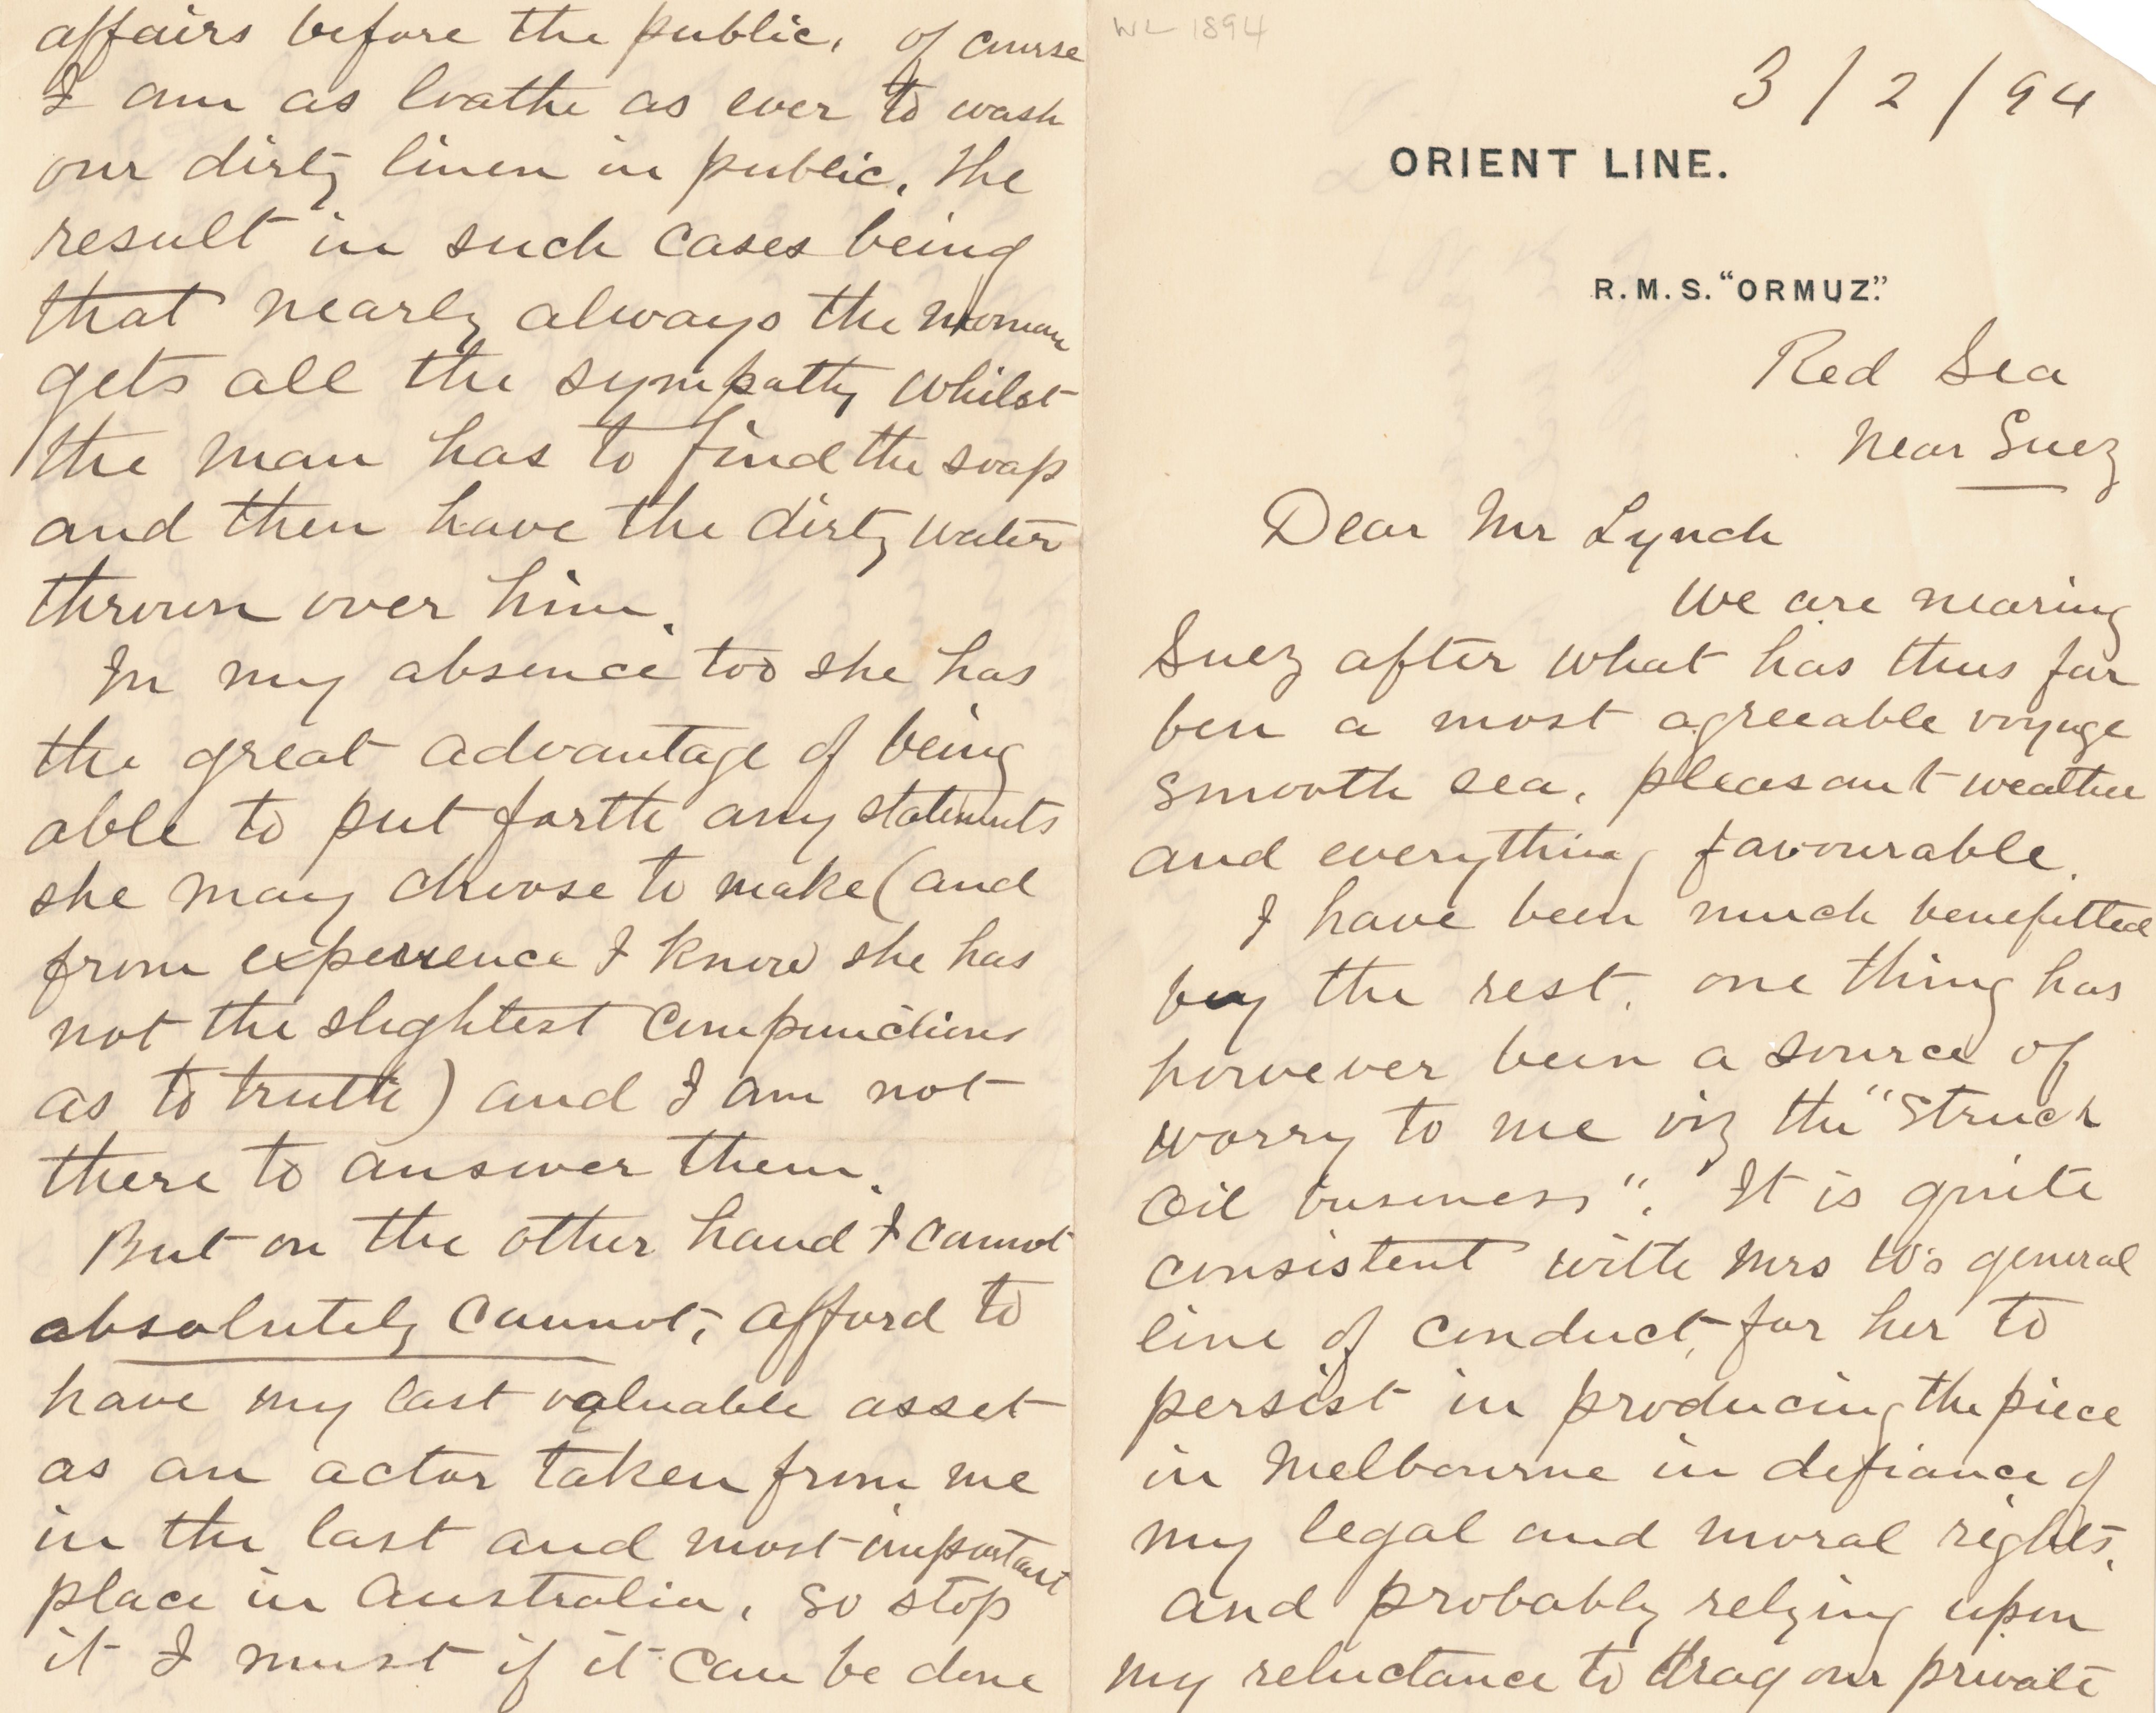 WL 1894
3/2/94
ORIENT LINE.
R.M.S. "ORMUZ".
Red Sea
Near Suez
Dear Mr Lynch
We are nearing
Suez after what has thus far
ben a most agreeable voyage
smooth sea, pleasant weather
and everything favourable.
I have been much benefitted
by the rest. one thing has
however been a source of
worry to me viz the "Struck
Oil business". It is quite
consistent with Mrs W's general
line of conduct, for her to
persist in producing the piece
in Melbourne in defiance of
my legal and moral rights,
and probably relying upon
my reluctance to drag our private
affairs before the public, of course
I am as loathe as ever to wash
our dirty linen in public. The
result in such cases being
that nearly always the woman
gets all the sympathy whilst
the man has to find the soap
and then have the dirty water
thrown over him.
In my absence too she has
the great advantage of being
able to put forth any statements
she may choose to make (and
from experience I know she has
not the slightest compunctions
as to truth) and I am not
there to answer them.
But on the other hand I cannot
absolutely cannot, afford to
have my last valuable asset
as an actor taken from me
in the last and most important
place in Australia, so stop
it I must if it can be done